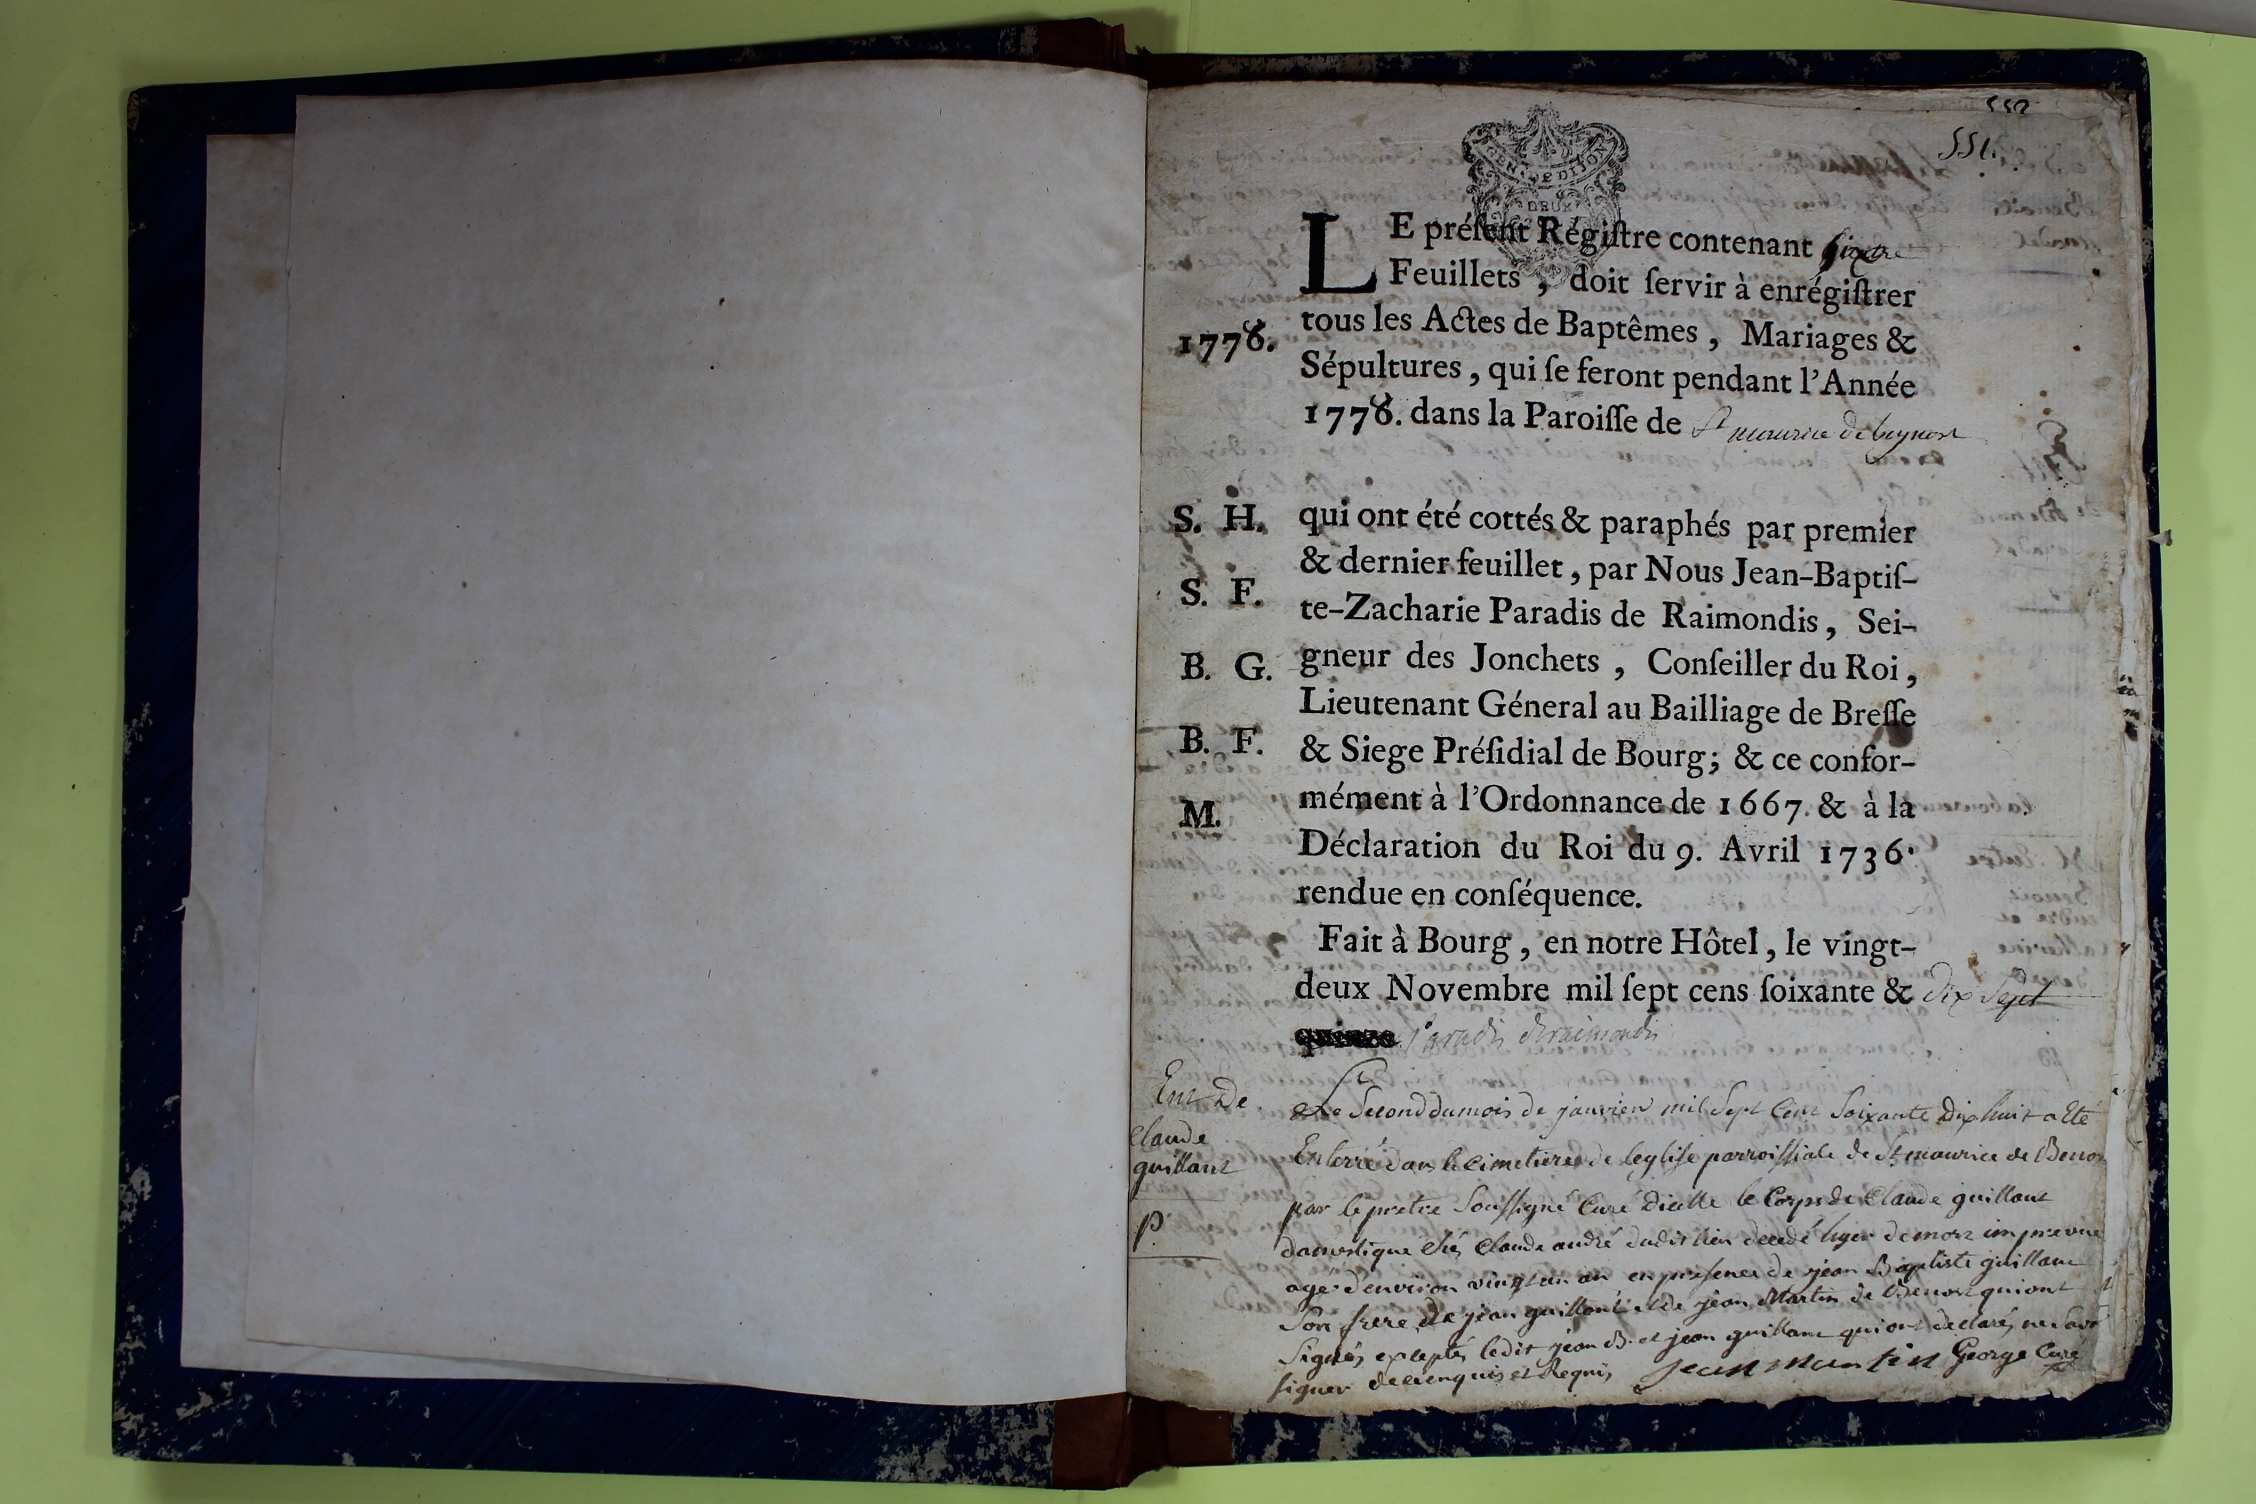 552
551.
GEN. DE DIJON
DEUX
LE préſent Régiſtre contenant
Feuillets, doit ſervir à enrégiſtrer
tous les Actes de Baptêmes, Mariages &
1778.
Sépultures, qui ſe feront pendant l'Année
1778. dans la Paroiſſe de St maurice de beynost
S. H. qui ont été cottés & paraphés par premier
& dernier feuillet, par Nous Jean-Baptiſ-
S. F. te-Zacharie Paradis de Raimondis, Sei-
B. G. gneur des Jonchets, Conſeiller du Roi,
Lieutenant Géneral au Bailliage de Breſſe
B. F. & Siege Préſidial de Bourg; & ce confor-
M. mément à l'Ordonnance de 1667. & à la
Déclaration du Roi du 9. Avril 1736.
rendue en conſéquence.
Fait à Bourg, en notre Hôtel, le vingt-
deux Novembre mil ſept cens ſoixante & dix Sept
Paradis deraimondis
Ent De
Claude
guillant
p.
Le Second dumois de janvier mil Sept Cent Soixante Dix huit a Eté
Enterré dans le Cimetiere de leglise parroissiale de St maurice de Benost
par le pretre Soussigné Curé Dicelle le Corps de Claude guillant
domestique chés Claude andré dudit lieu décédé hyer de mort imprevue
agé d'environ vingt un an en presence de jean Baptiste guillant
Son frere de jean guillant et de jean Martin de Benost qui ont
Signés exceptés ledit jean B. et jean guillant qui ont declarés ne savoir
signer de ce enquis et Requis jean martin George Curé